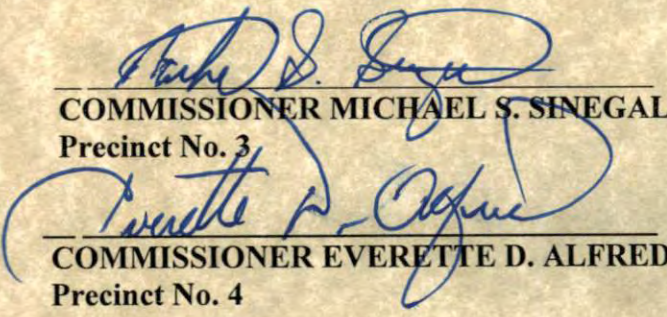 Michael S. Sinegal
COMMISSIONER MICHAEL S. SINEGAL
Precinct No. 3
Everette D. Alfred
COMMISSIONER EVERETTE D. ALFRED
Precinct No. 4